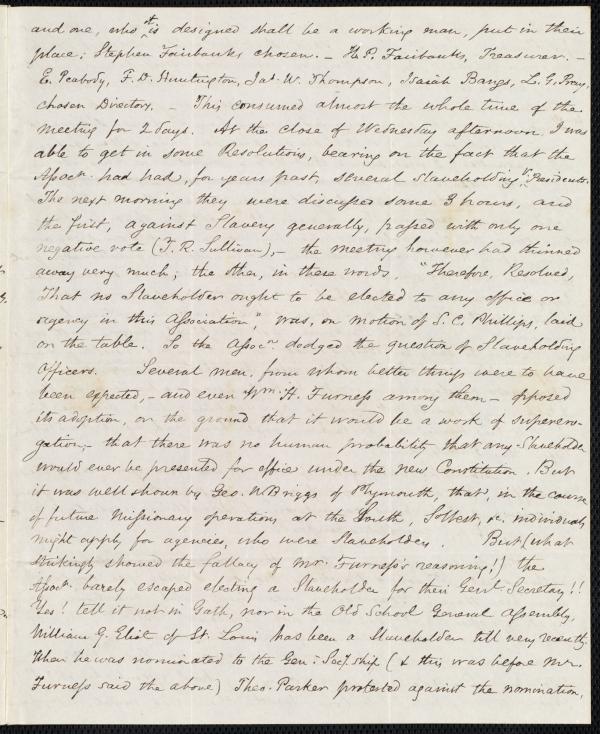 and one, who it is designed shall be a working man, put in their
place; Stephen Fairbanks chosen. – H. P. Fairbanks, Treasurer. –
E. Peabody, F. D. Huntington, Jas. W. Thompson, Isaiah Bangs, L. G. Pray,
chosen Directory. – This consumed almost the whole time of the
meeting for 2 days. At the close of Wednesday afternoon, I was
able to get in some Resolutions, bearing on the fact that the
Assocn. had had, for years past, several Slaveholding V. Presidents.
The next morning they were discussed some 3 hours, and
the first, against Slavery generally, passed with only one
negative vote (T. R. Sullivan), – the meeting however had thinned
away very much; the other, in these words, "Therefore, Resolved,
That no Slaveholder ought to be elected to any office or
agency in this Association", was, on motion of S. C. Phillips, laid
on the table. So the Assocn. dodged the question of Slaveholding
Officers. Several men, from whom better things were to have
been expected, – and even Wm. H. Furness among them – opposed
its adoption, on the ground that it would be a work of superero-
gation, – that there was no human probability that any Slaveholder
would ever be presented for office under the new Constitution. But
it was well shown by Geo. W. Briggs of Plymouth, that, in the course
of future Missionary operations at the South, So.West, &c. individuals
might apply for agencies, who were Slaveholders. But (what
strikingly showed the fallacy of Mr. Furness's reasoning!) the
Assocn. barely escaped electing a Slaveholder for their Genl. Secretary!!
Yes! tell it not in Gath, nor in the Old School General Assembly.
William G. Eliot of St. Louis has been a Slaveholder till very recently.
When he was nominated to the Gen. Secy.ship (& this was before Mr.
Furness said the above) Theo. Parker protested against the nomination,